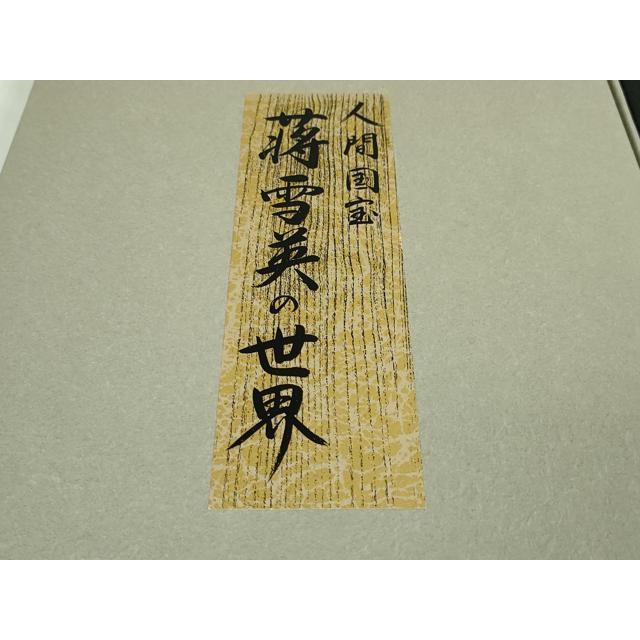 人間国宝
蒋雪英の世界